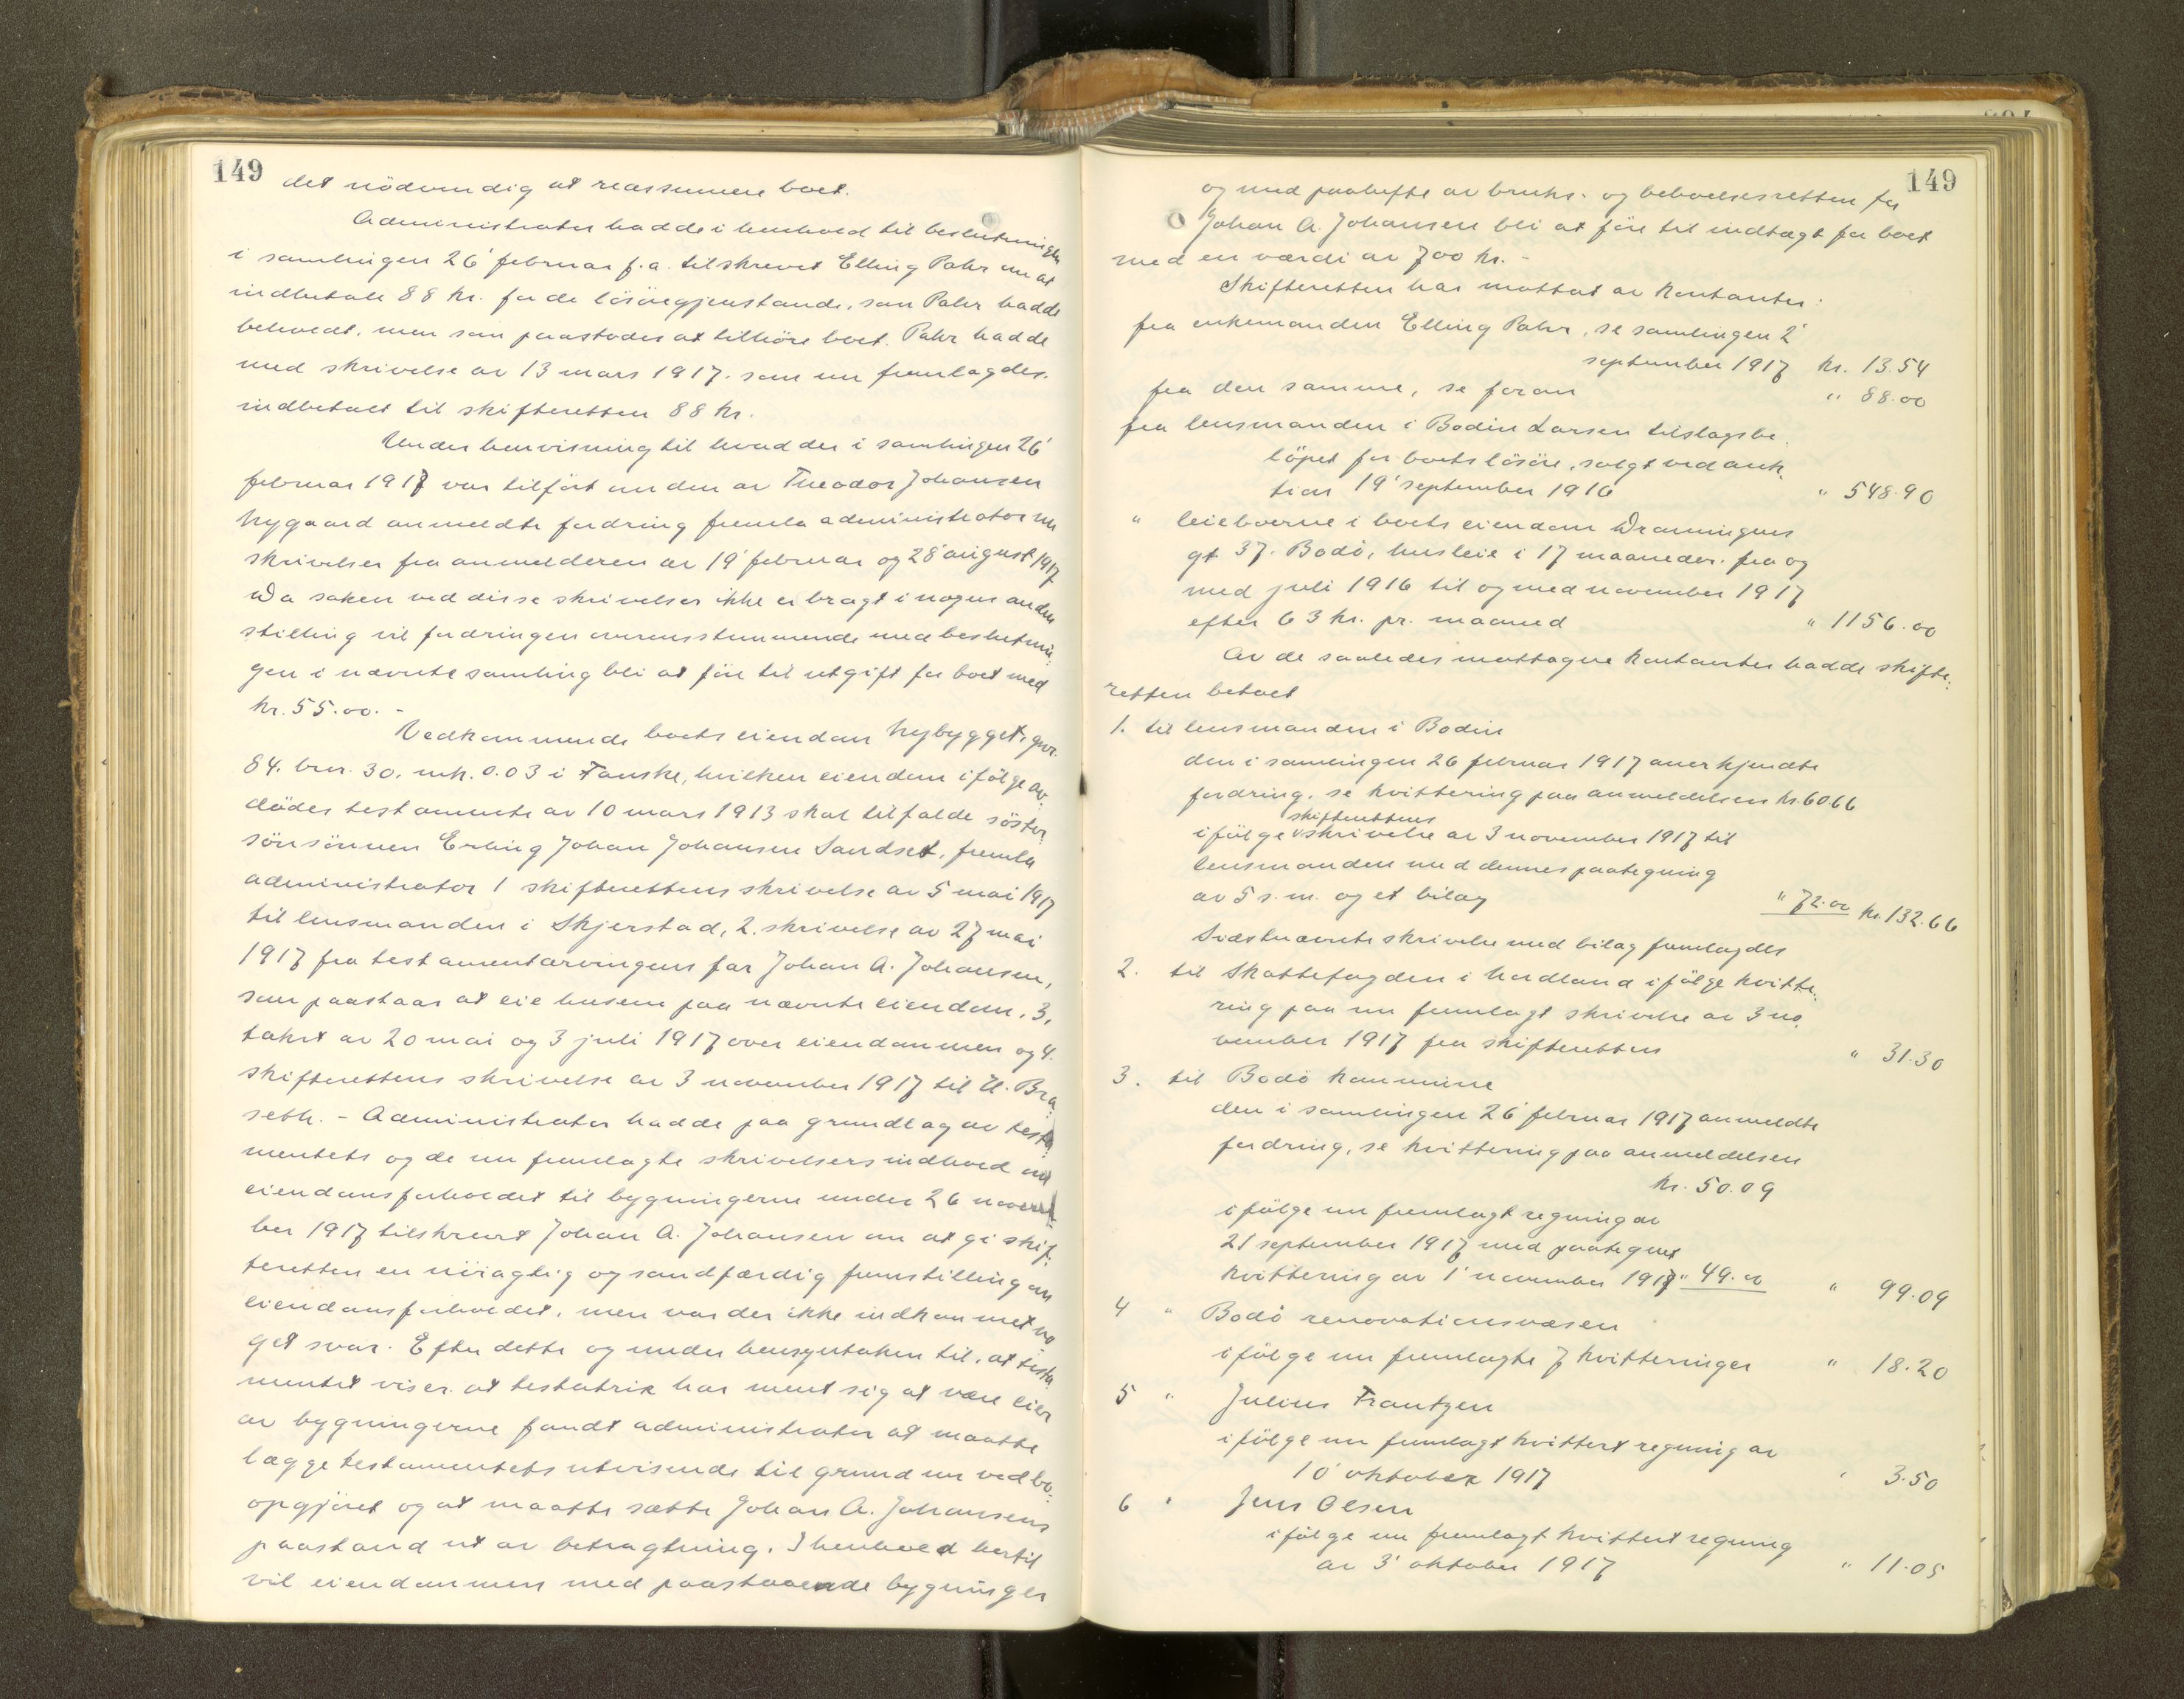 149
det nödvendig at reassumere boet.
Administrator hadde i henhold til beslutningen
i samlingen 26' februar f.a. tilskrevet Elling Pahr om at
indbetale 88 kr. for de lösöregjenstande, som Pahr hadde
beholdt, men som paastodes at tilhöre boet. Pahr hadde
med skrivelse av 13 mars 1917. som nu fremlagdes.
indbetalt til skifteretten 88 kr.
Under henvisning til hvad der i samlingen 26'
februar 1917 var tilfört om den av Theodor Johansen
Nygaard anmeldte fordring fremla administrator nu
skrivelser fra anmelderen av 19' februar og 28' august 1917
Da saken ved disse skrivelser ikke er bragt i nogen anden
stilling vil fordringen overensstemmende med beslutnin-
gen i nævnte samling bli at före til utgift for boet med
kr. 55.00. -
Vedkommende boets eiendom Nybygget, gnr.
84. bnr. 30. mk. 0.03 i Fauske, hvilken eiendom ifölge av-
dödes testamente av 10 mars 1913 skal tilfalde söster-
sönsönnen Erling Johan Johansen Sandset, fremla
administrator 1 skifterettens skrivelse av 5 mai 1917
til lensmanden i Skjerstad, 2. skrivelse av 27 mai
1917 fra testamentarvingens far Johan A. Johansen,
som paastaar at eie husene paa nævnte eiendom, 3,
takst av 20 mai og 3 juli 1917 over eiendommen og 4.
skifterettens skrivelse av 3 november 1917 til U. Bra-
seth. - Administrator hadde paa grundlag av testa-
mentets og de nu fremlagte skrivelsers indhold om
eiendomsforholdet til bygningerne under 26 novem-
ber 1917 tilskrevet Johan A. Johansen om at gi skif-
teretten en nöiagtig og sandfærdig fremstilling om
eiendomsforholdet, men var der ikke indkommet no-
get svar. Efter dette og under hensyntaken til, at testa-
mentet viser, at testatrix har ment sig at være eier
av bygningerne fandt administrator at maatte
lægge testamentets utvisende til grund nu ved bo-
opgjöret og at maatte sætte Johan A. Johansens
paastand ut av betragtning. I henhold hertil
vil eiendommen med paastaaende bygninger
149
og med paahefte av bruks- og beboelsesretten for
Johan A. Johansen bli at före til indtægt for boet
med en værdi av 700 kr. -
Skifteretten har mottat av kontanter:
fra enkemanden Elling Pahr, se samlingen 2'
september 1917 kr. 13.54
fra den samme, se foran " 88.00
fra lensmanden i Bodin Larsen tilslagsbe-
löpet for boets lösöre, solgt ved auk-
tion 19' september 1916 " 548.90
" leieboerne i boets eiendom Dronningens
gt 37. Bodö, husleie i 17 maaneder. fra og
med juli 1916 til og med november 1917
efter 63 kr. pr. maaned " 1156.00
Av de saaledes mottagne kontanter hadde skifte-
retten betalt
1. til lensmanden i Bodin
den i samlingen 26 februar 1917 anerkjendte
fordring, se kvittering paa anmeldelsen kr. 60.66
ifölge skifterettens skrivelse av 3 november 1917 til
lensmanden med dennes paategning
av 5 s.m. og et bilag " 72.00 kr. 132.66
Sidstnævnte skrivelse med bilag fremlagdes
2. til Skattefogden i Nordland ifölge kvitte-
ring paa nu fremlagt skrivelse av 3 no-
vember 1917 fra skifteretten " 31.30
3. til Bodö kommune
den i samlingen 26' februar 1917 anmeldte
fordring, se kvittering paa anmeldelsen
kr. 50.09
ifölge nu fremlagt regning av
21 september 1917 med paategnet
kvittering av 1' november 1917 " 49.00 " 99.09
4 " Bodö renovationsvæsen
ifölge nu fremlagte 7 kvitteringer " 18.20
5 " Julius Frantzen
ifölge nu fremlagt kvittert regning av
10' oktober 1917 " 3.50
6 " Jens Olsen
ifölge nu fremlagt kvittert regning
av 3' oktober 1917 " 11.05